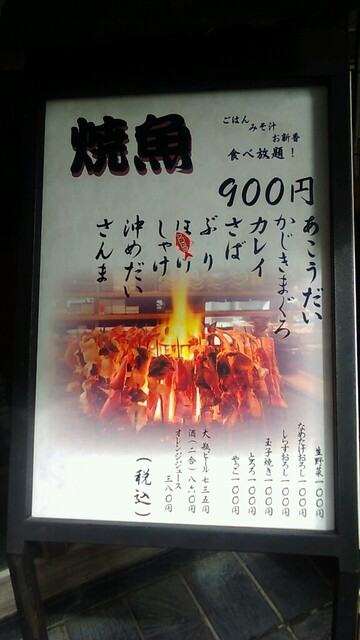 焼魚
ごはん
みそ汁
お新香
食べ放題！
900円
あこうだい
かじきまぐろ
カレイ
さば
ぶり
ほっけ
しゃけ
沖めだい
さんま
生野菜一〇〇円
なめたけおろし一〇〇円
しらすおろし一〇〇円
玉子焼き一〇〇円
とろろ一〇〇円
やっこ一〇〇円
大瓶ビール七三五円
酒（二合）八六〇円
オレンジジュース
三八〇円
（税込）